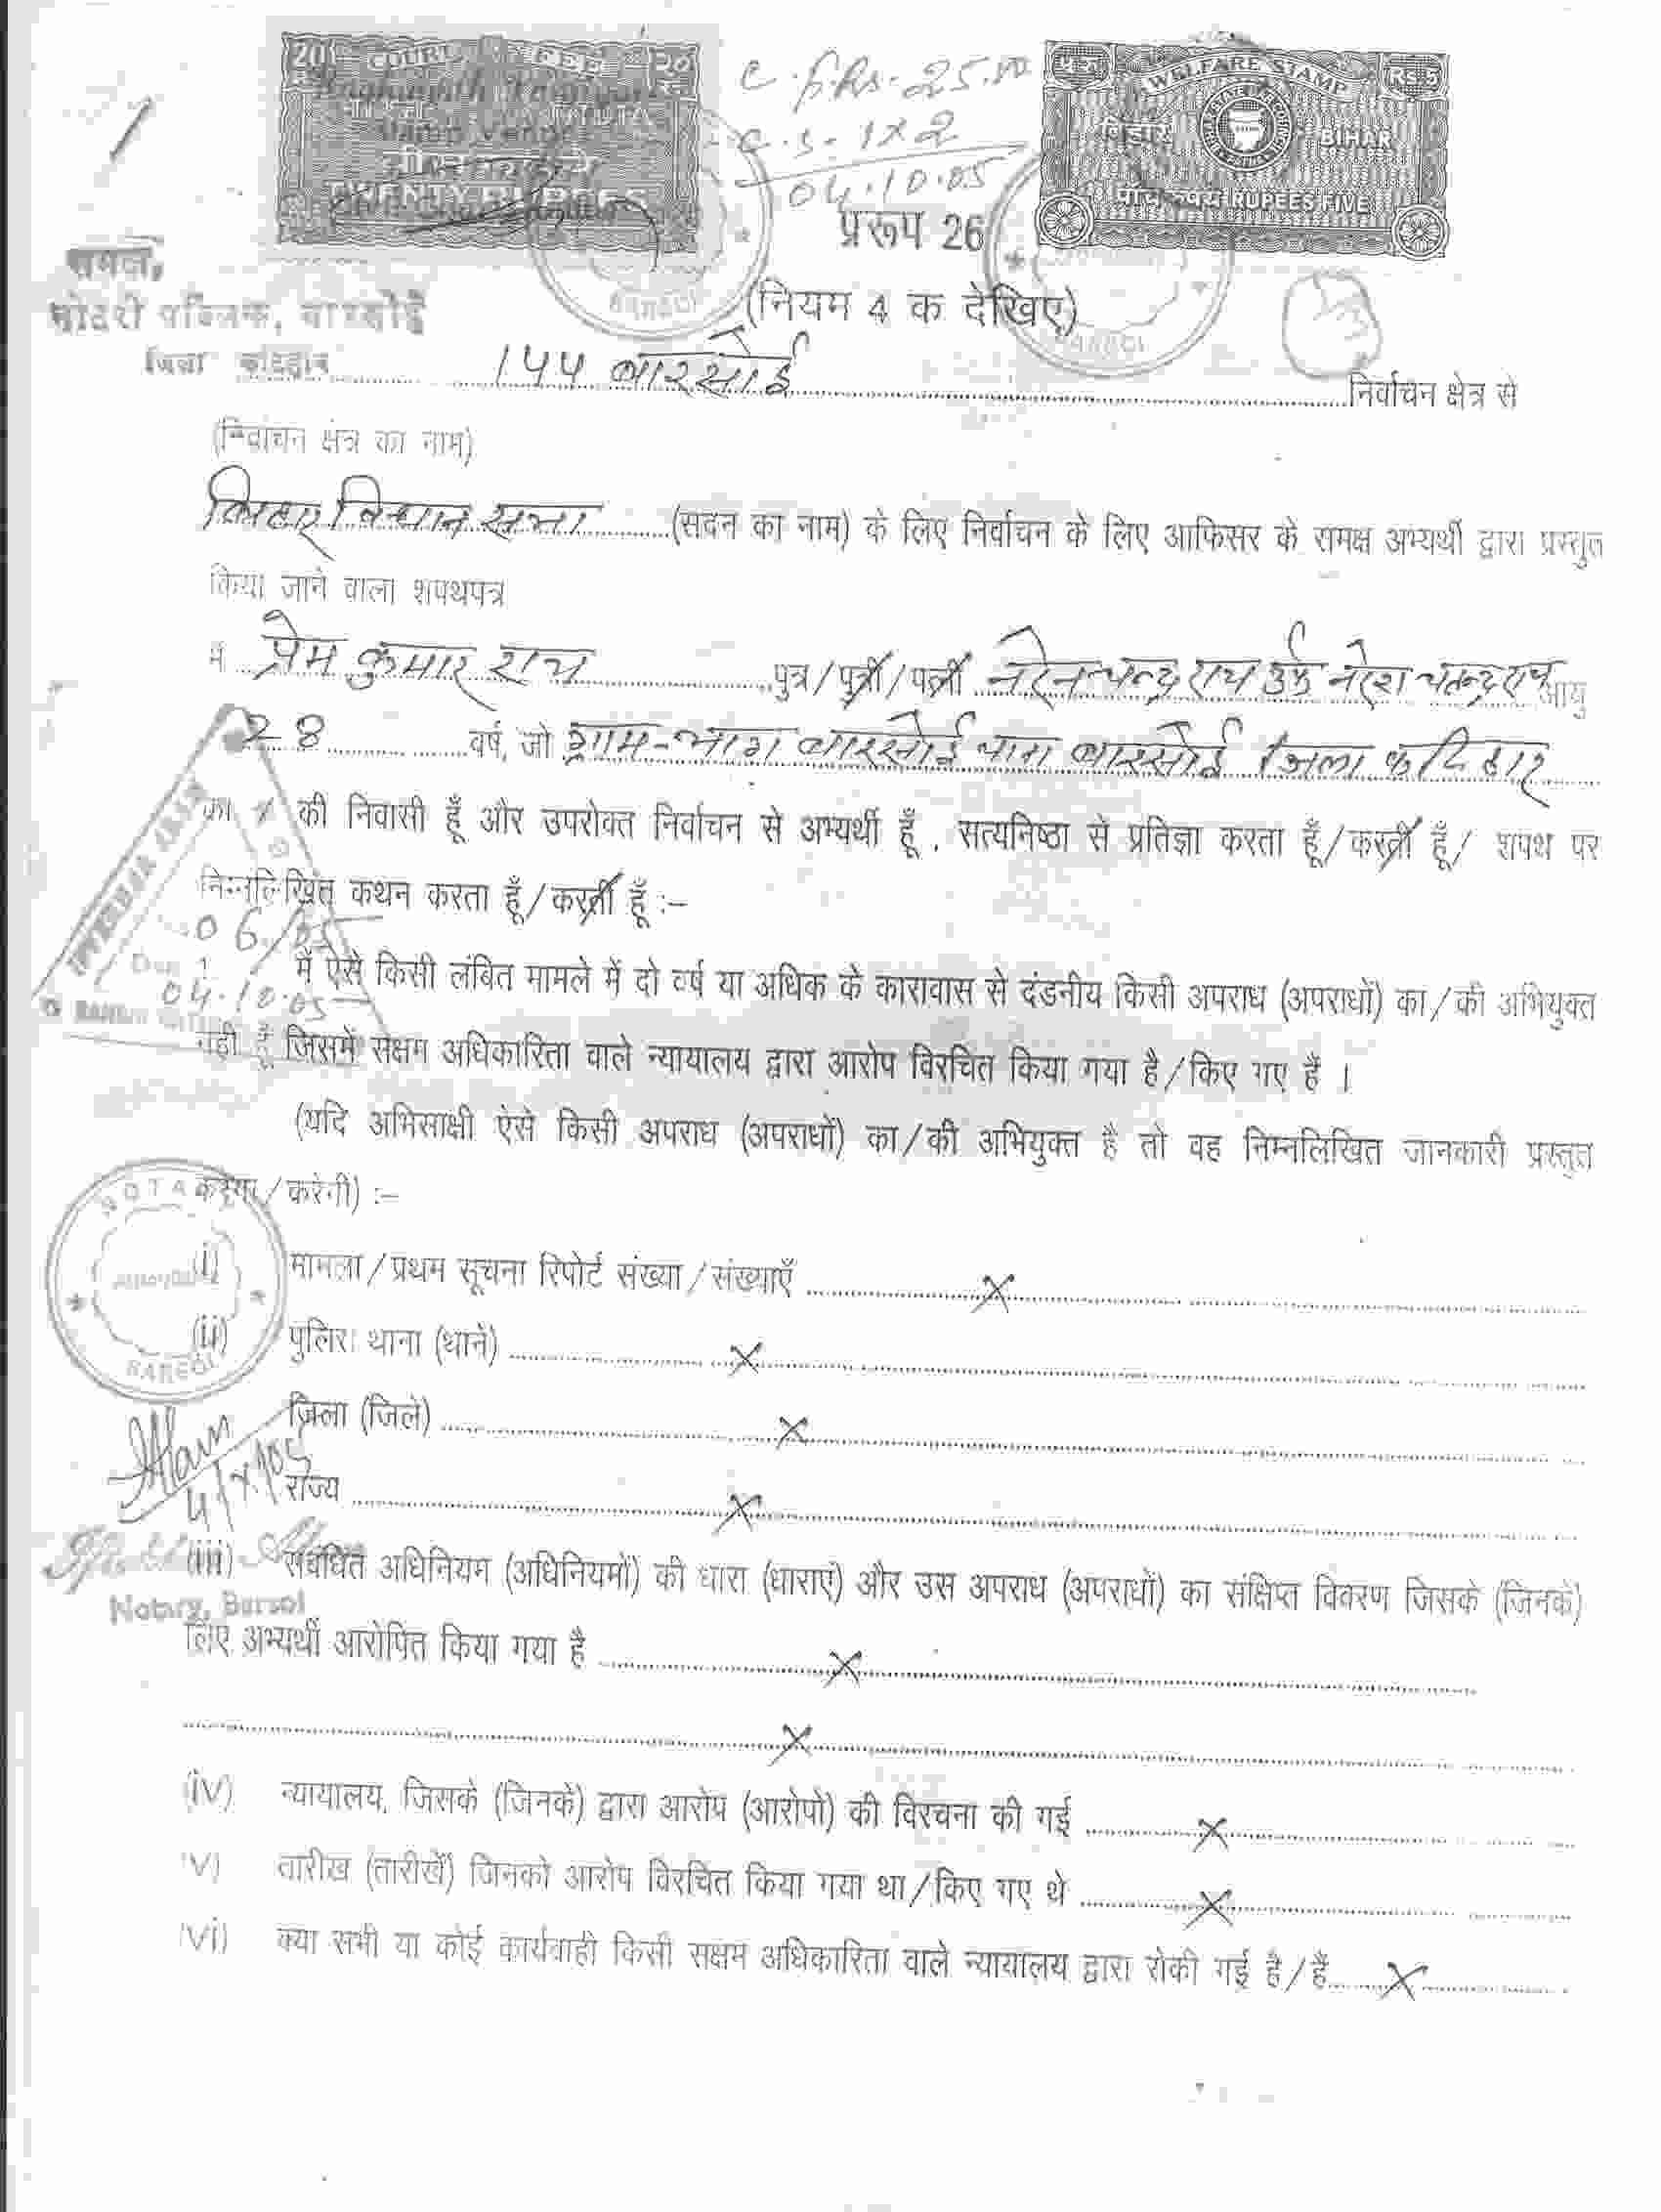 20 COURT FEE २०
INDIA
Stamp Vendor
TWENTY RUPEES
C.f. Rs. 25.00
C.S. 1x2
04.10.05
पांच रु० WELFARE STAMP RS 5
बिहार BIHAR
पांच रुपये RUPEES FIVE
प्ररूप 26
समक्ष,
नोटरी पब्लिक, बारसोई
जिला कटिहार
BARSOI
BARSOI
(नियम 4 क देखिए)
144 बारसोई निर्वाचन क्षेत्र से
(निर्वाचन क्षेत्र का नाम)
बिहार विधान सभा (सदन का नाम) के लिए निर्वाचन के लिए आफिसर के समक्ष अभ्यर्थी द्वारा प्रस्तुत
किया जाने वाला शपथपत्र
मैं प्रेम कुमार राय पुत्र/पुत्री/पत्नी नरेन चन्द्र राय उर्फ नरेश चन्द्र राय आयु
28 वर्ष, जो ग्राम-भाग बारसोई थाना बारसोई जिला कटिहार
का / की निवासी हूँ और उपरोक्त निर्वाचन से अभ्यर्थी हूँ , सत्यनिष्ठा से प्रतिज्ञा करता हूँ/करती हूँ/ शपथ पर
निम्नलिखित कथन करता हूँ/करती हूँ :–
06/05
04.10.05
1. मैं ऐसे किसी लंबित मामले में दो वर्ष या अधिक के कारावास से दंडनीय किसी अपराध (अपराधों) का/की अभियुक्त
नहीं हूँ जिसमें सक्षम अधिकारिता वाले न्यायालय द्वारा आरोप विरचित किया गया है/किए गए हैं ।
(यदि अभिसाक्षी ऐसे किसी अपराध (अपराधों) का/की अभियुक्त है तो वह निम्नलिखित जानकारी प्रस्तुत
करेगा/करेगी) :–
NOTARY
BARSOI
(i) मामला/प्रथम सूचना रिपोर्ट संख्या/संख्याएँ X
(ii) पुलिस थाना (थाने) X
जिला (जिले) X
राज्य X
4/X/05
(iii) संबंधित अधिनियम (अधिनियमों) की धारा (धाराएं) और उस अपराध (अपराधों) का संक्षिप्त विवरण जिसके (जिनके)
Notary, Barsoi
लिए अभ्यर्थी आरोपित किया गया है X
X
(iv) न्यायालय, जिसके (जिनके) द्वारा आरोप (आरोपों) की विरचना की गई X
(v) तारीख (तारीखें) जिनको आरोप विरचित किया गया था/किए गए थे X
(vi) क्या सभी या कोई कार्यवाही किसी सक्षम अधिकारिता वाले न्यायालय द्वारा रोकी गई है/हैं X